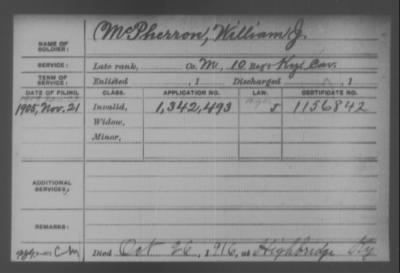 McPherron, William J.
NAME OF SOLDIER:
SERVICE: Late rank, Co. M, 10 Reg't Ky. Cav.
TERM OF SERVICE: Enlisted , 1 Discharged , 1
DATE OF FILING. CLASS. APPLICATION NO. LAW. CERTIFICATE NO.
1905, Nov. 21 Invalid, 1,342,493 1156842
Widow,
Minor,
ADDITIONAL SERVICES:
REMARKS:
Died Oct 26, 1916, at Highbridge Ky